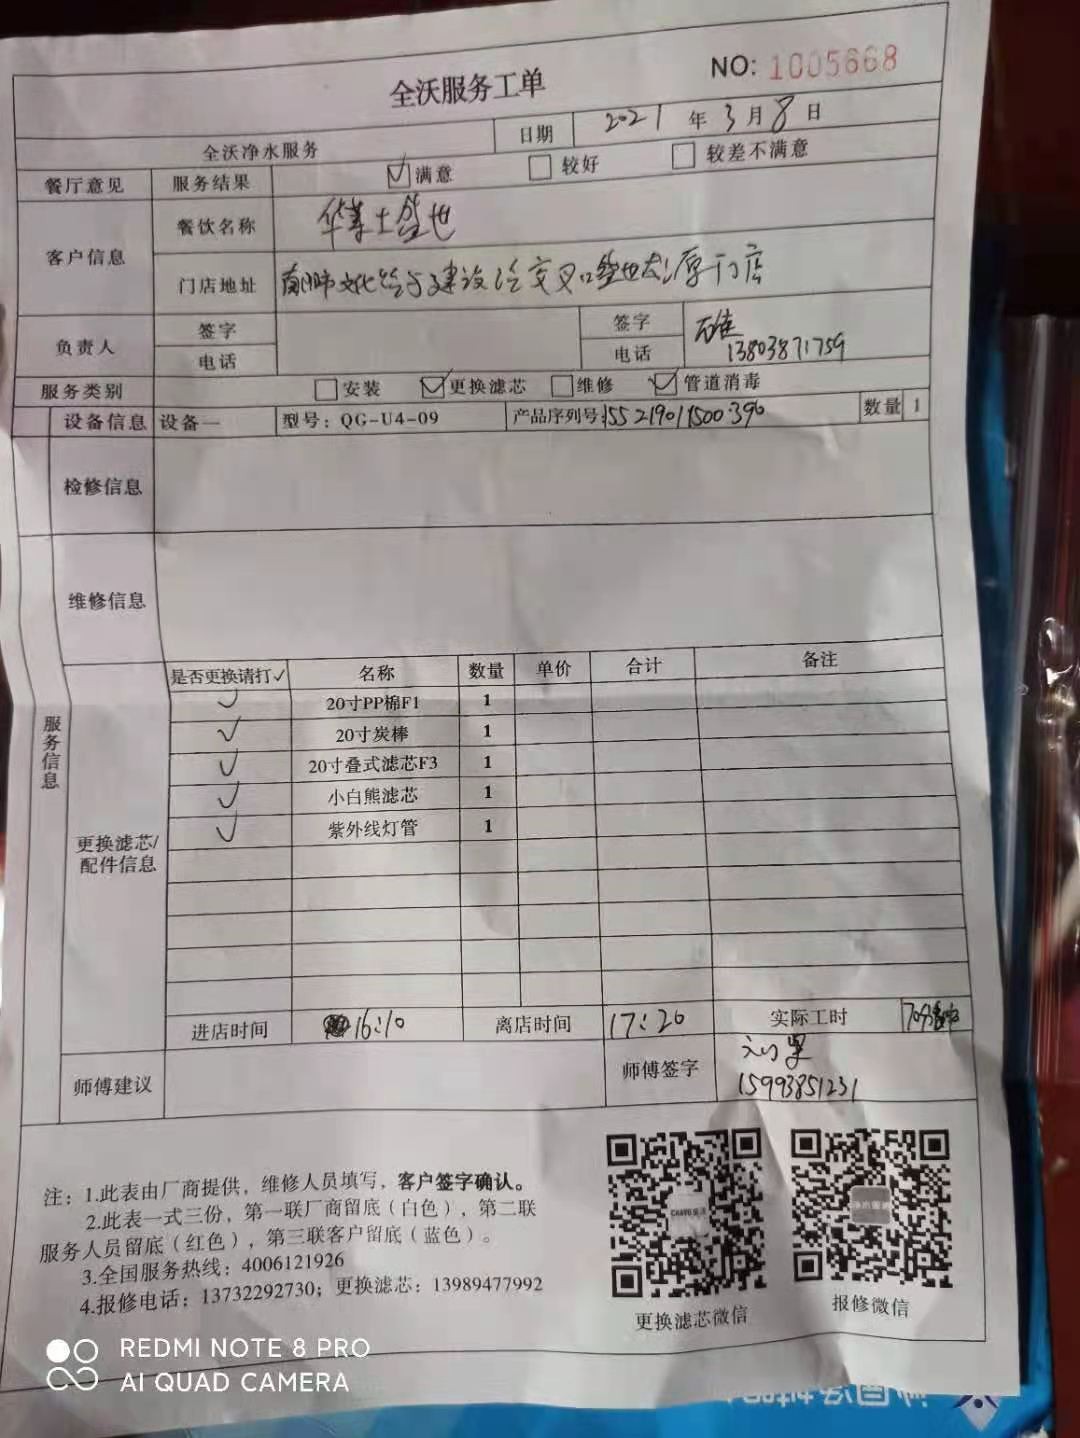 全沃服务工单
NO: 1005668
全沃净水服务 日期 2021 年 3 月 8 日
餐厅意见 服务结果 满意 较好 较差不满意
客户信息 餐饮名称 华莱士
门店地址 文化路与建设路交叉口 门店
负责人 签字 签字
电话 电话 13803871759
服务类别 安装 更换滤芯 维修 管道消毒
设备信息 设备一 型号: QG-U4-09 产品序列号 数量 1
检修信息
维修信息
服务信息
更换滤芯/配件信息
是否更换请打✓ 名称 数量 单价 合计 备注
✓ 20寸PP棉F1 1
✓ 20寸炭棒 1
✓ 20寸叠式滤芯F3 1
✓ 小白熊滤芯 1
✓ 紫外线灯管 1
进店时间 16:10 离店时间 17:20 实际工时
师傅建议 师傅签字
15993851231
注: 1.此表由厂商提供, 维修人员填写, 客户签字确认。
2.此表一式三份, 第一联厂商留底(白色), 第二联
服务人员留底(红色), 第三联客户留底(蓝色)。
3.全国服务热线: 4006121926
4.报修电话: 13732292730; 更换滤芯: 13989477992
更换滤芯微信 报修微信
REDMI NOTE 8 PRO
AI QUAD CAMERA